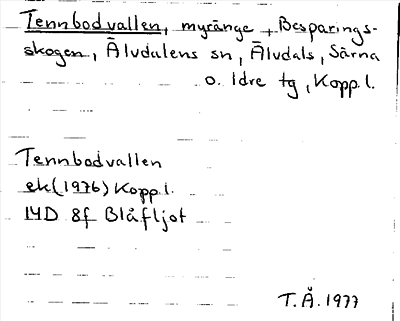 Tennbodvallen, myränge, Besparings-
skogen, Älvdalens sn, Älvdals, Särna
o. Idre tg, Kopp.l.
Tennbodvallen
ek(1976) Kopp.l.
14D 8f Blåfljot
T.Å. 1977